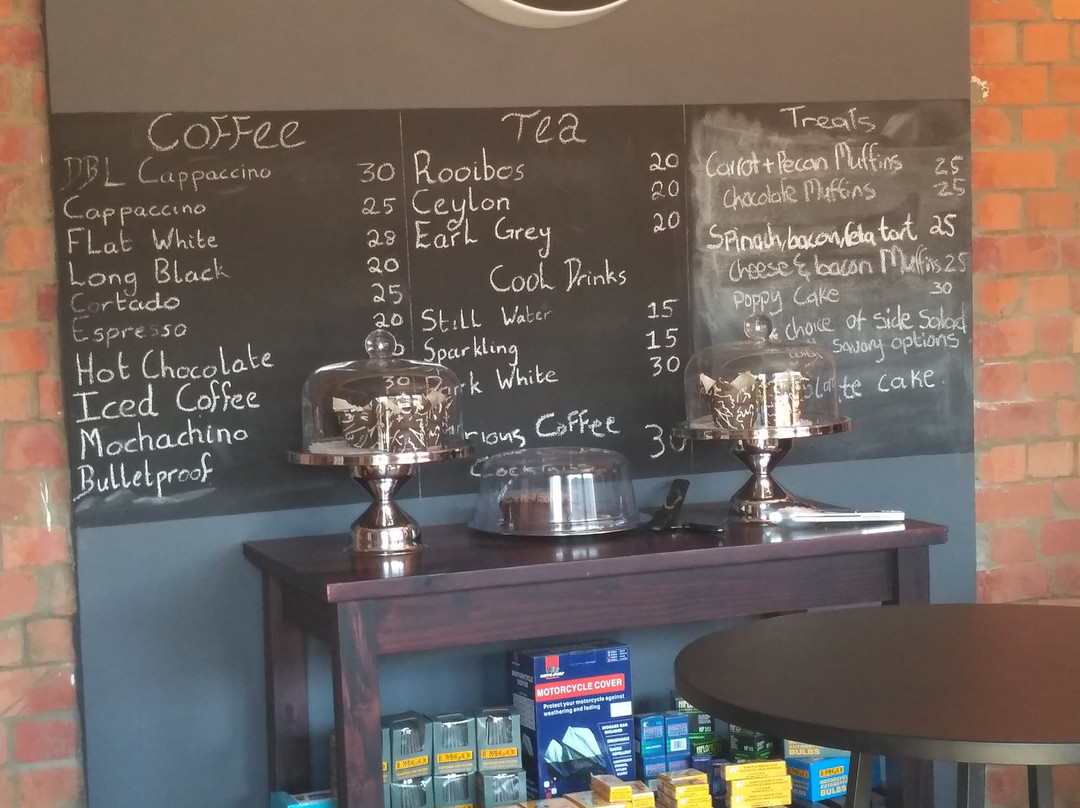 Coffee
DBL Cappaccino 30
Cappaccino 25
FLat White 28
Long Black 20
Cortado 25
Espresso 20
Hot Chocolate
Iced Coffee 30
Mochachino
Bulletproof
Tea
Rooibos 20
Ceylon 20
Earl Grey 20
Cool Drinks
Still Water 15
Sparkling 15
White 30
Coffee 30
Treats
Carrot + Pecan Muffins 25
Chocolate Muffins 25
Spinach/bacon/feta tart 25
Cheese & bacon Muffins 25
Poppy Cake 30
choice of side Salad
Savory options
cake
MOTORCYCLE COVER
Protect your motorcycle against
weathering and fading
EMGO
BULBS
EMGO
BULBS